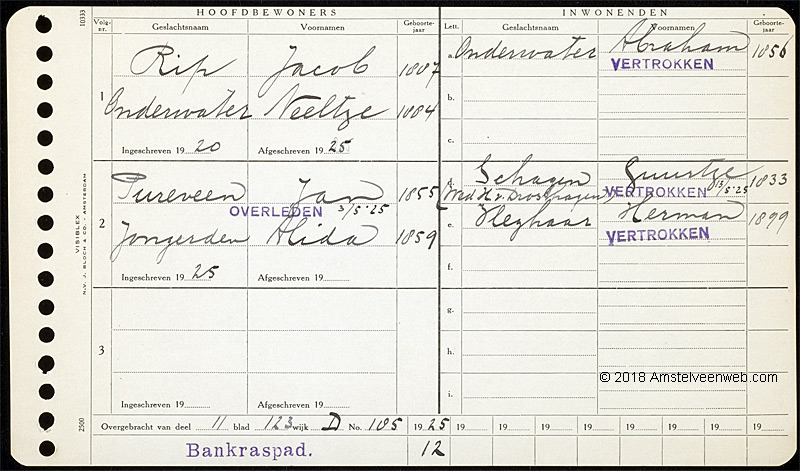 HOOFDBEWONERS
INWONENDEN
Volg-nr.
Geslachtsnaam
Voornamen
Geboorte-jaar
Lett.
Geslachtsnaam
Voornamen
Geboorte-jaar
10333
1
Rip Jacob 1887
Onderwater Neeltje 1884
Ingeschreven 19 20 Afgeschreven 19 25
a. Onderwater Abraham 1856
VERTROKKEN
b.
c.
2
Pureveen Jan 1855
OVERLEDEN 3/5 '25
Jongerden Alida 1859
Ingeschreven 19 25 Afgeschreven 19
d. Schagen Guurtje 1833
VERTROKKEN 13/5 '25
e. Heghaar Herman 1899
VERTROKKEN
f.
3
Ingeschreven 19 Afgeschreven 19
g.
h.
i.
VISIBLEX
N.V. J. BLOCH & CO. - AMSTERDAM
2500
© 2018 Amstelveenweb.com
Overgebracht van deel 11 blad 123 wijk D No. 105 19 25 19 19 19 19 19 19 19 19
Bankraspad. 12